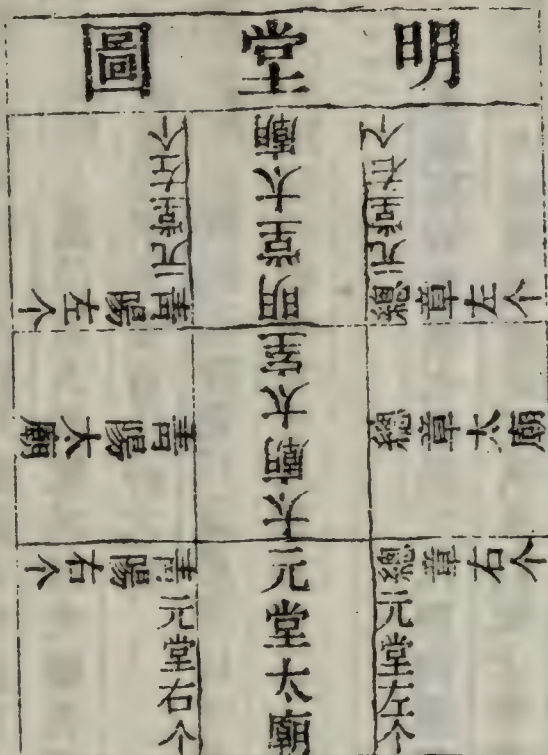 明堂圖
明堂右个
總章左个
明堂太廟
明堂左个
青陽左个
總章太廟
太廟太室
青陽太廟
總章右个
元堂左个
元堂太廟
青陽右个
元堂右个